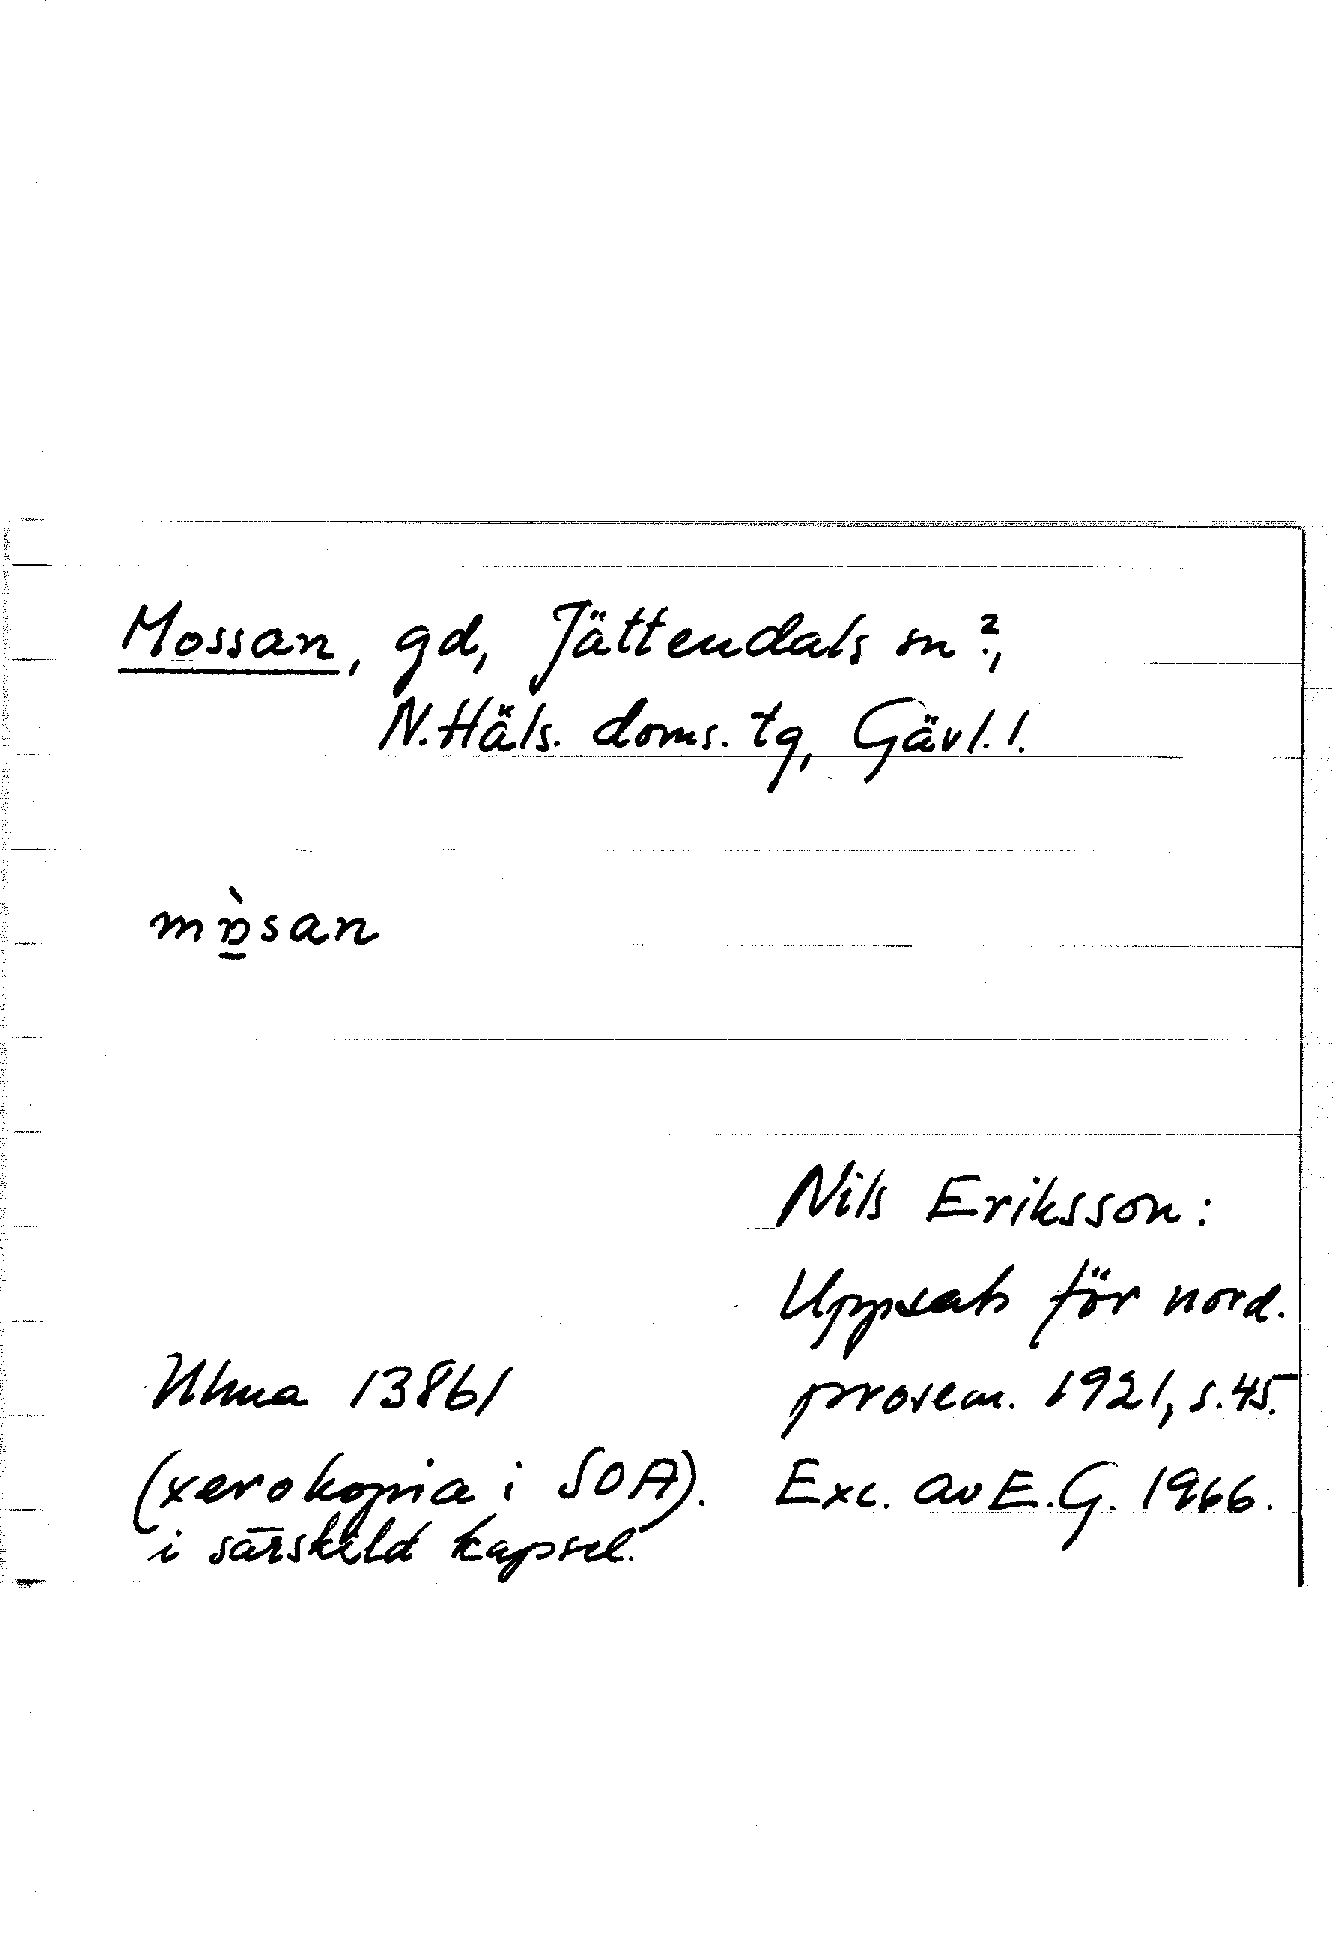 Mossan, gd, Jättendals sn?,
N. Häls. doms. tg, Gävl. l.
san
Nils Eriksson:
Uppsats för nord.
prosem. 1921, s. 45.
Ulma 13861
(xerokopia i SOA).
Exc. av E. G. 1966.
i särskild kapsel.